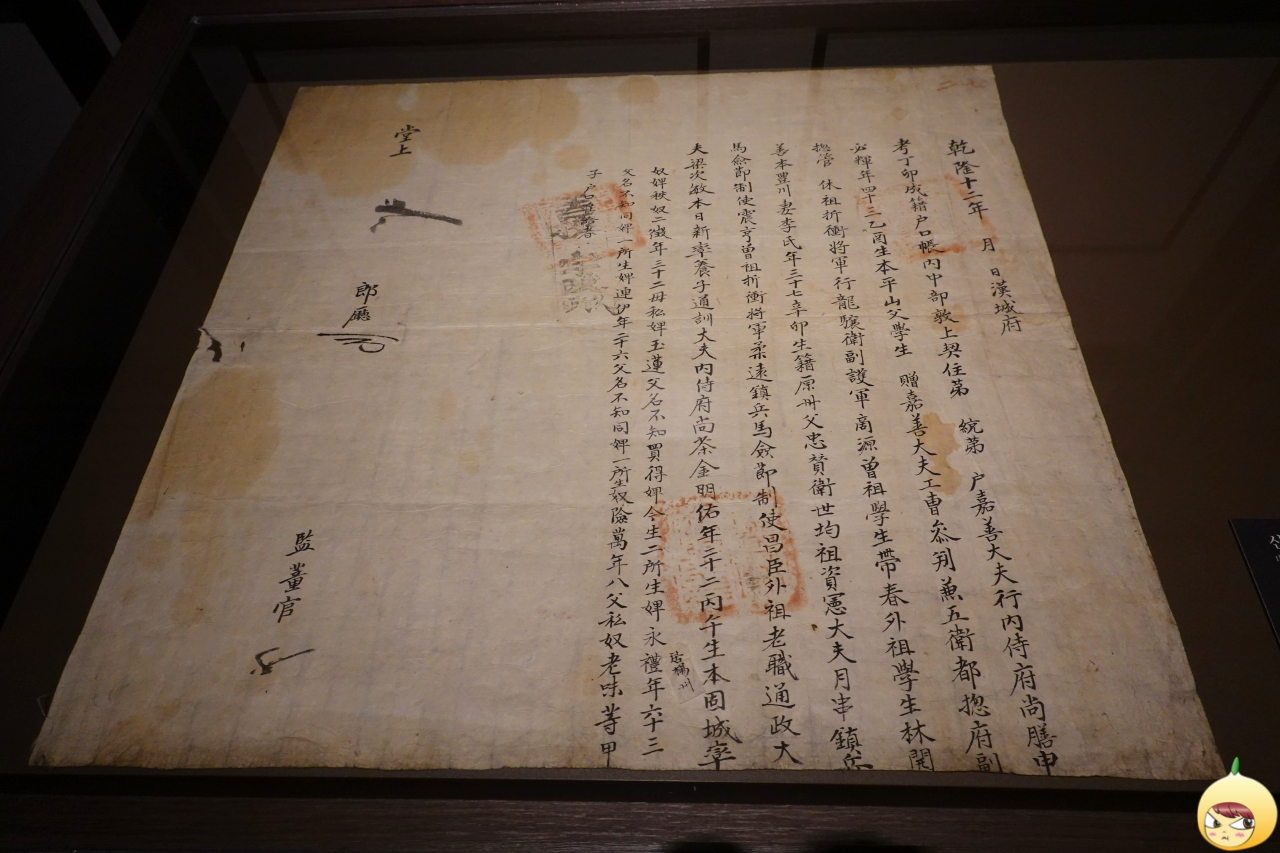 乾隆十二年 月 日漢城府
考丁卯成籍户口帳內中部敦上契住第 統第 户嘉善大夫行內侍府尚膳申
必輝年四十三乙酉生本平山父學生 贈嘉善大夫工曹叅判兼五衛都摠府副
摠管 休祖折衝將軍行龍驤衛副護軍商源曾祖學生帶春外祖學生林開
善本豊川妻李氏年三十七辛卯生籍原州父忠贊衛世均祖資憲大夫月串鎮兵
馬僉節制使震亨曾祖折衝將軍柔遠鎮兵馬僉節制使昌臣外祖老職通政大
夫梁次敏本日新率養子通訓大夫內侍府尚茶金明佑年二十二丙午生本固城率
奴婢秩奴二徵年三十二母私婢玉蓮父名不知買得婢今生二所生婢永禮年六十三
父名不知同婢一所生婢連伊年二十六父名不知同婢一所生奴險萬年八父私奴老味等甲
子户口
堂上
郎廳
監董官